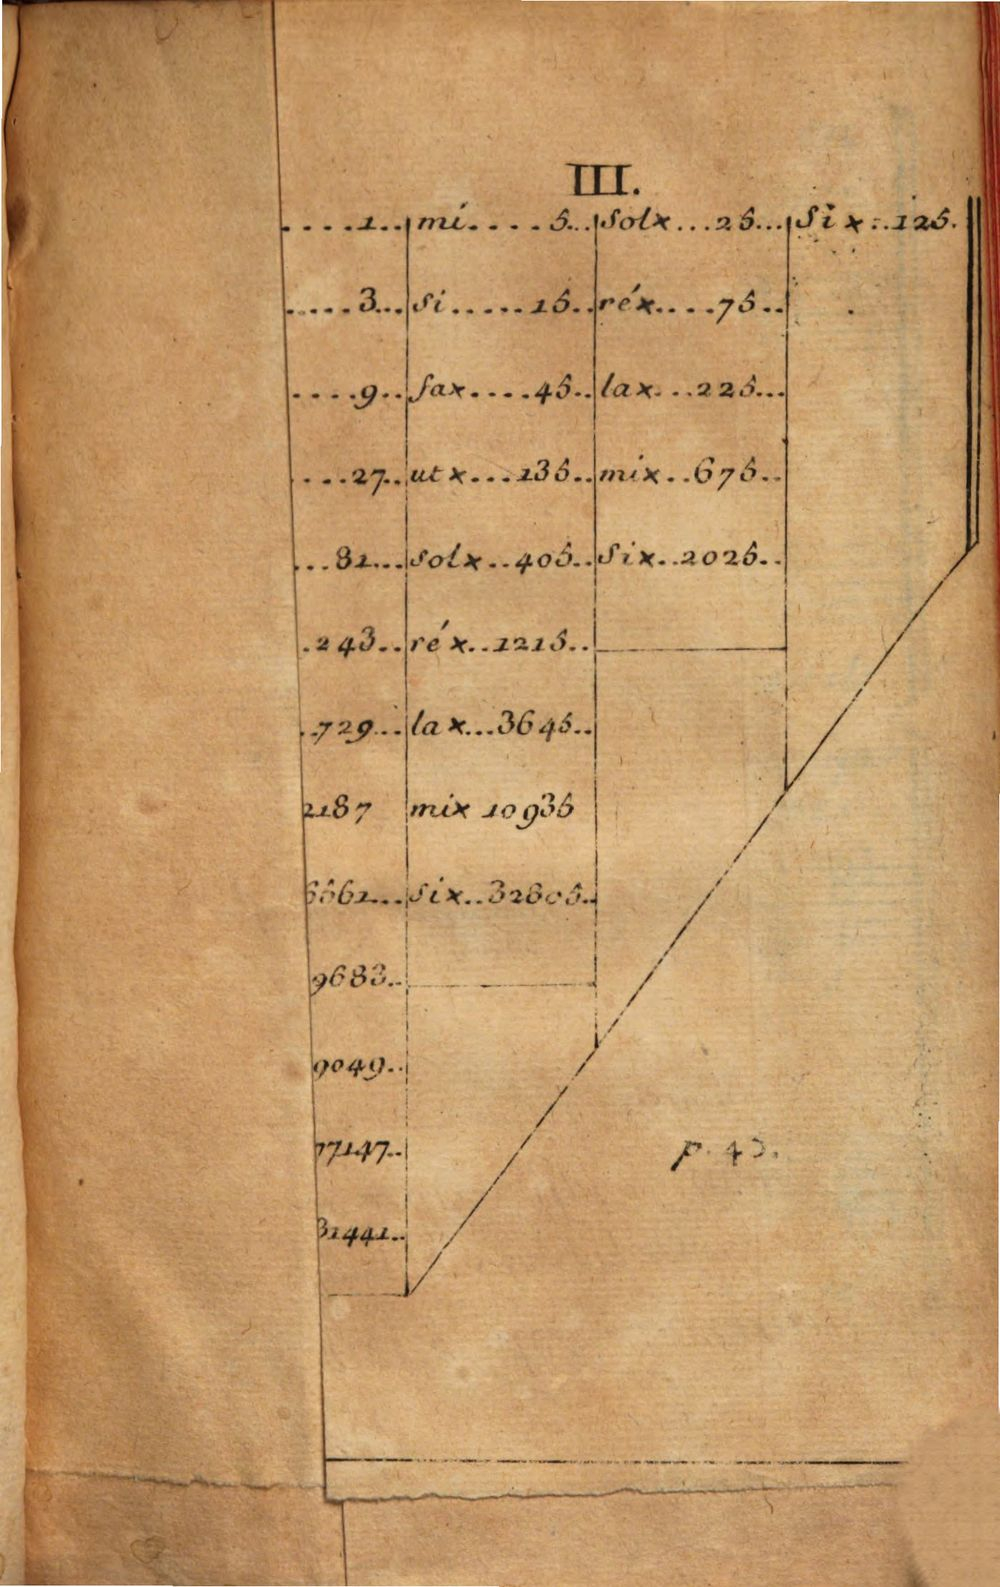 III.
....1.. mi.....5... Solx...25... Six...125.
.....3... Si......15.. réx.....75..
....9.. fax....45.. lax...225...
....27.. utx...135.. mix..675..
...81... Solx..405.. Six..2025..
.243.. réx..1215..
..729... lax...3645..
2187 mix 10935
6561... Six..32805..
9683..
9049..
77147..
31441..